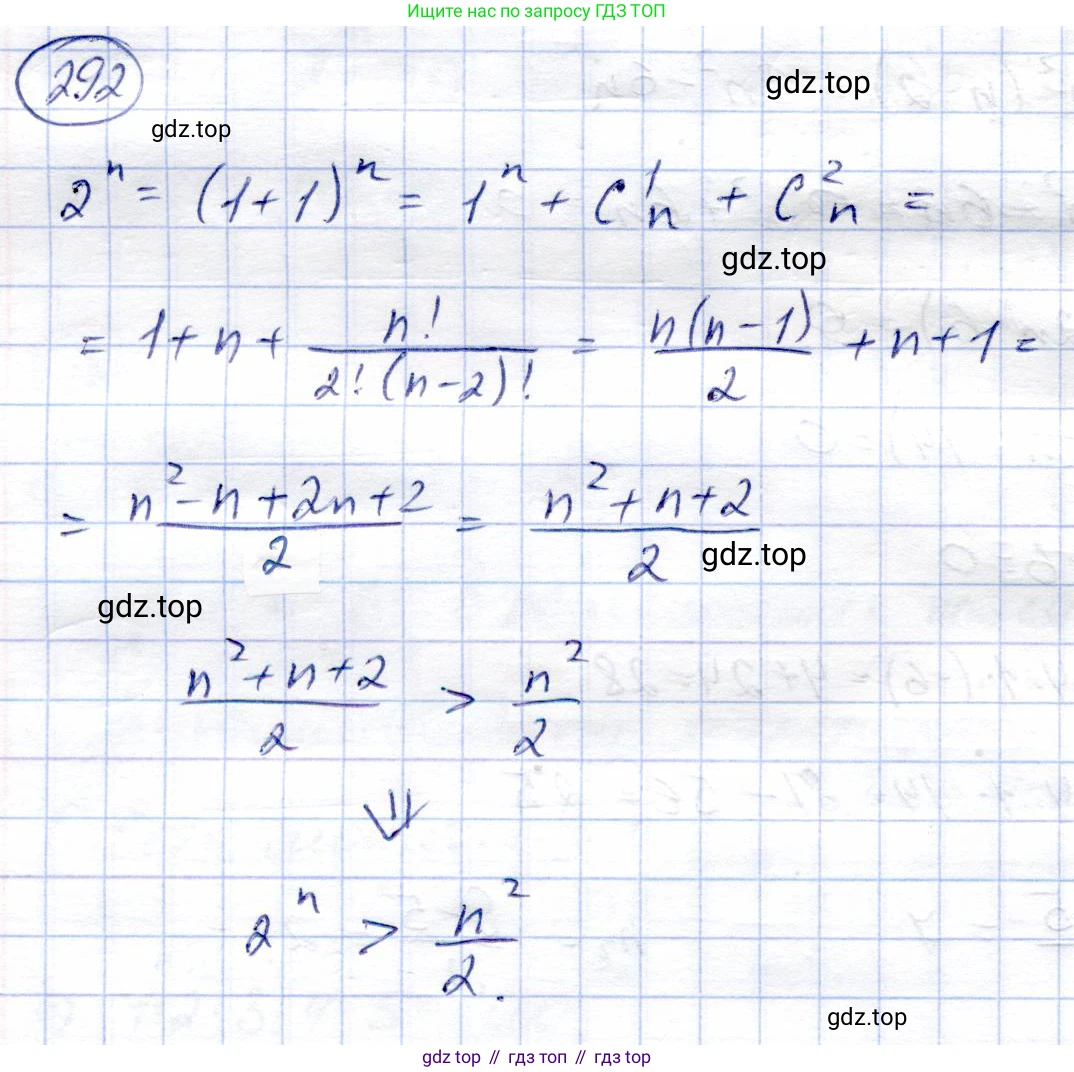 Ищите нас по запросу ГДЗ ТОП
292
gdz.top
gdz.top
2^n = (1+1)^n = 1^n + C_n^1 + C_n^2 =
gdz.top
= 1 + n + n!/(2!(n-2)!) = n(n-1)/2 + n + 1 =
= (n^2 - n + 2n + 2)/2 = (n^2 + n + 2)/2
gdz.top
gdz.top
(n^2 + n + 2)/2 > n^2/2
⇓
2^n > n^2/2.
gdz.top
gdz top // гдз топ // гдз top